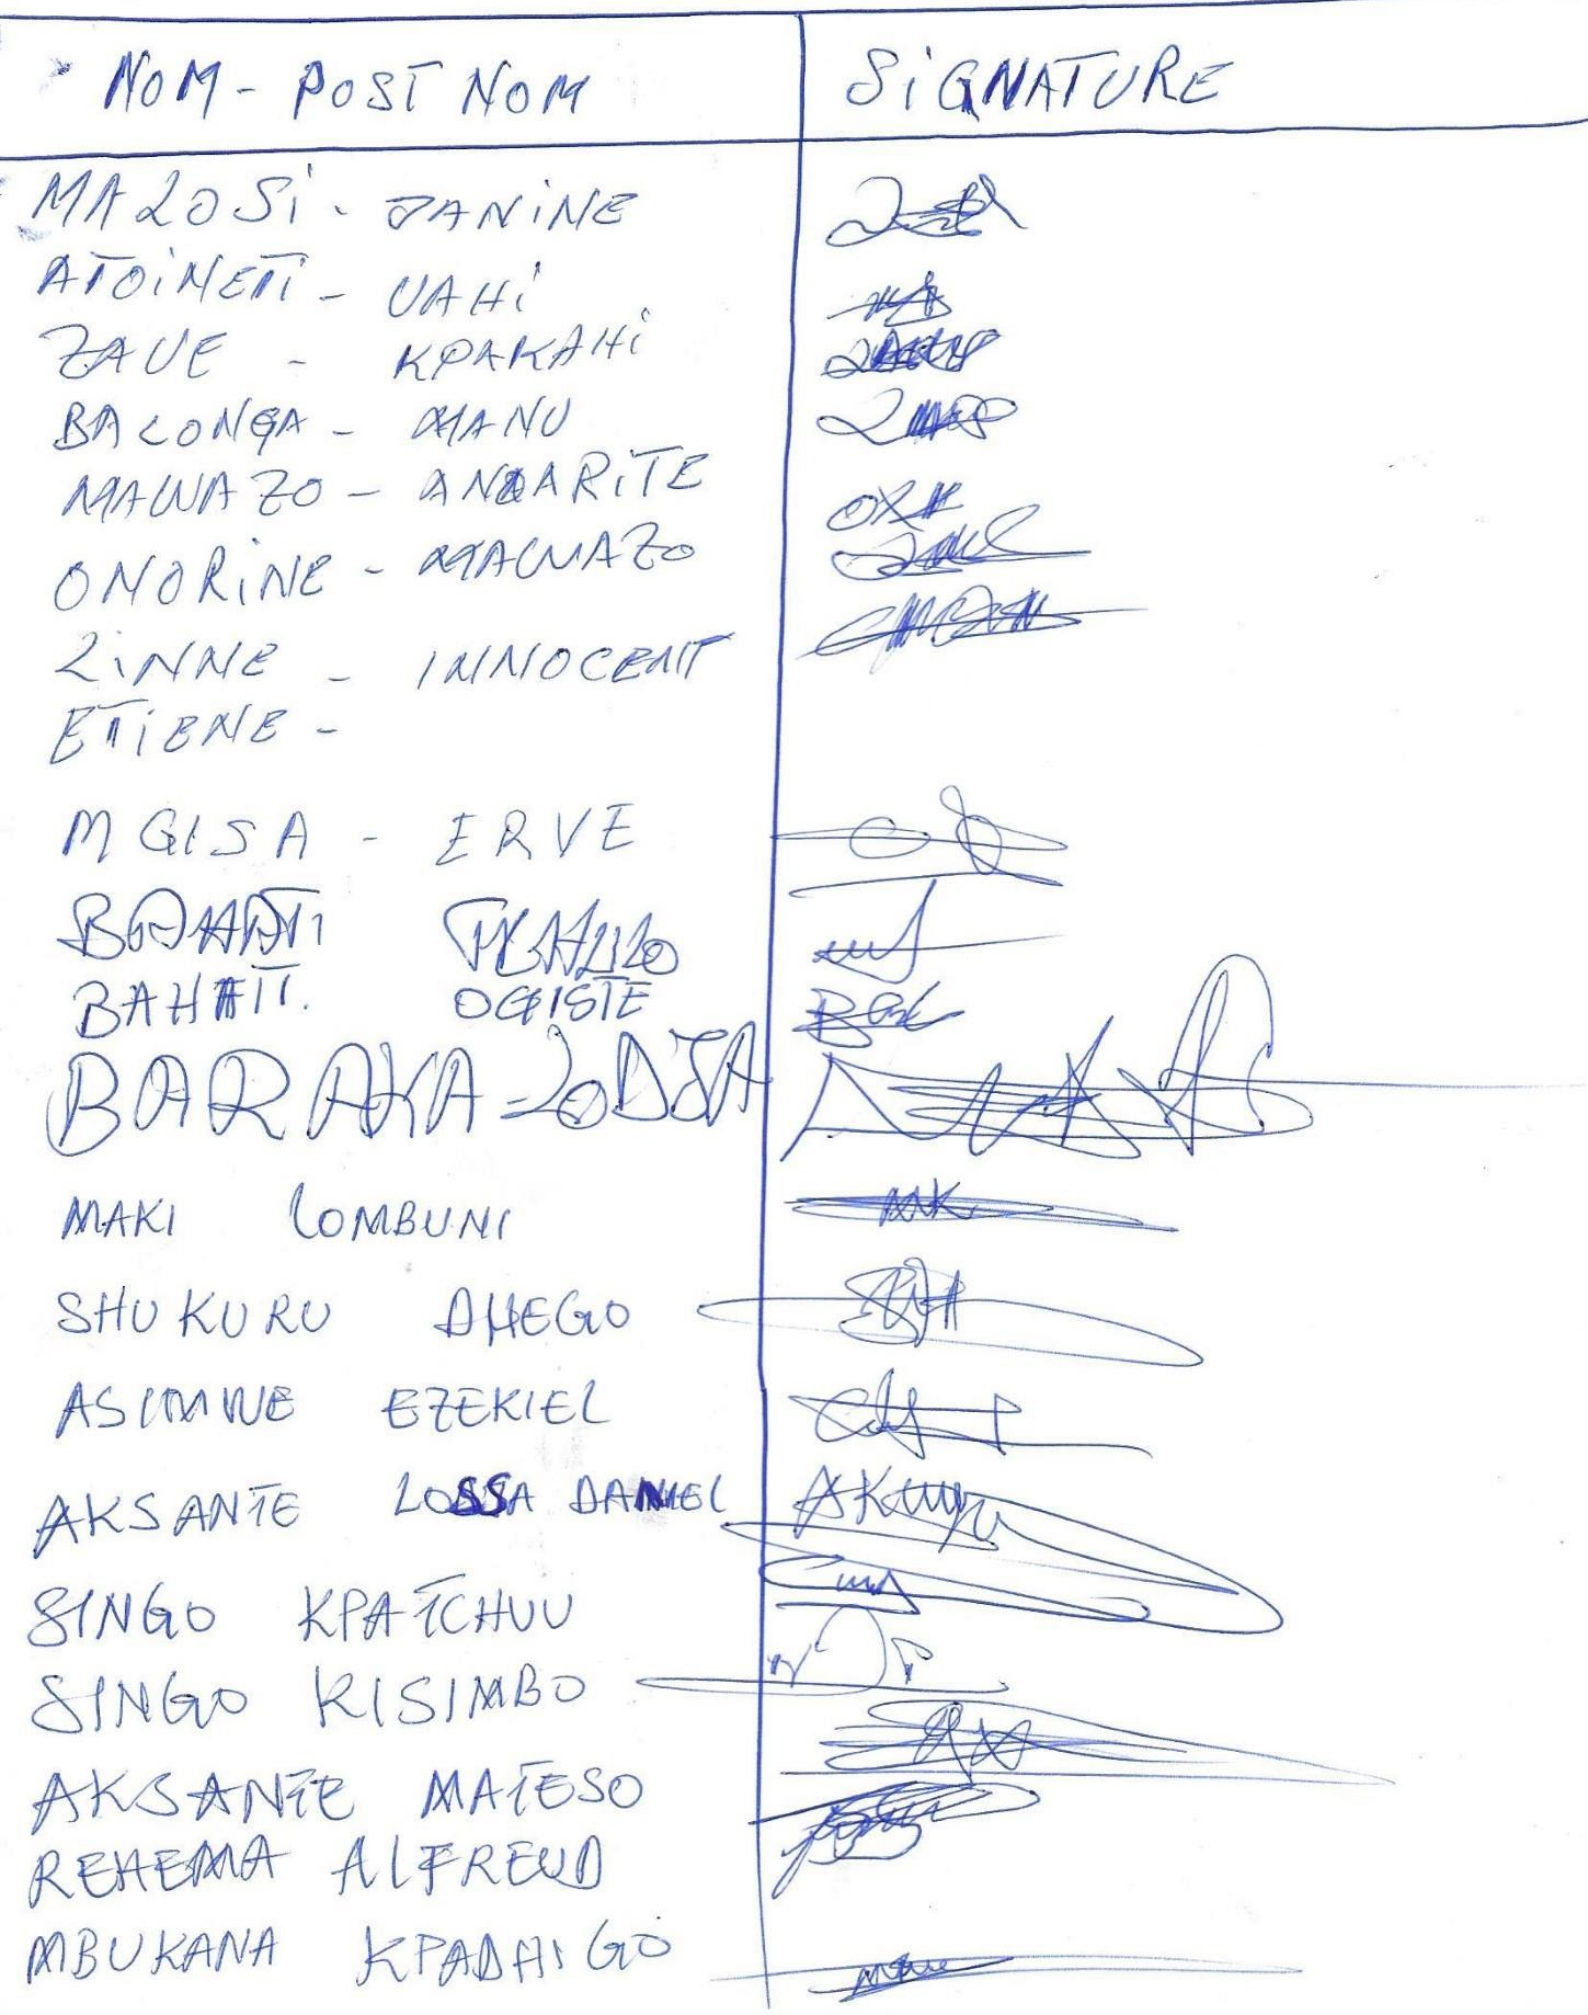 NOM - POST NOM SIGNATURE
MALOSI - JANINE
ATOINETI - UAHI
ZAUE - KPAKAHI
BALONGA - MANU
MAWAZO - ANUARITE
ONORINE - MAWAZO
LINNE - INNOCENT
ETIENE -
MGISA - ERVE
BAHATI
BAHATI. OGISTE
BARAKA - LODJA
MAKI LOMBUNI MK
SHUKURU DHEGO
ASIMWE EZEKIEL
AKSANTE LOSSA DANIEL
SINGO KPATCHUU
SINGO KISIMBO
AKSANTE MATESO
REHEMA ALFREUD
MBUKANA KPADHIGO